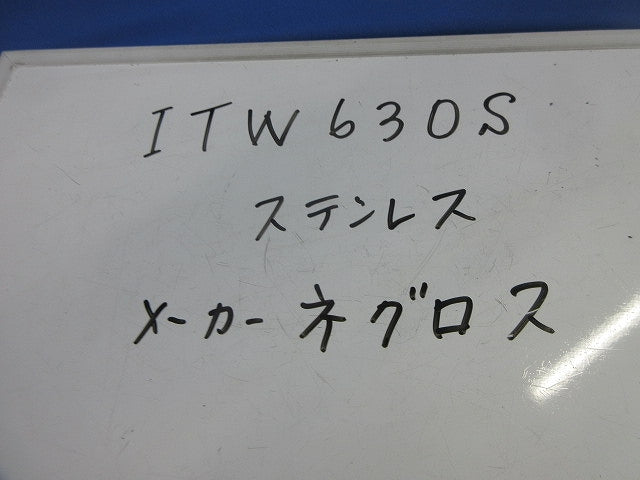 ITW630S
ステンレス
メーカー ネグロス